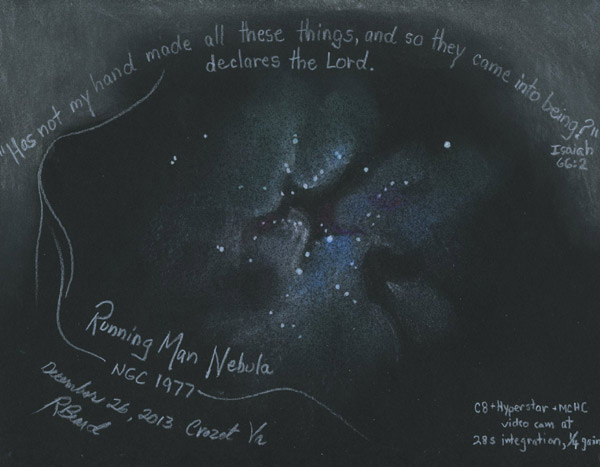 "Has not my hand made all these things, and so they came into being?"
declares the Lord.
Isaiah
66:2
Running Man Nebula
NGC 1977
December 26, 2013 Crozet Va
RBeard
C8+Hyperstar+MCHC
video cam at
28s integration, ¼ gain